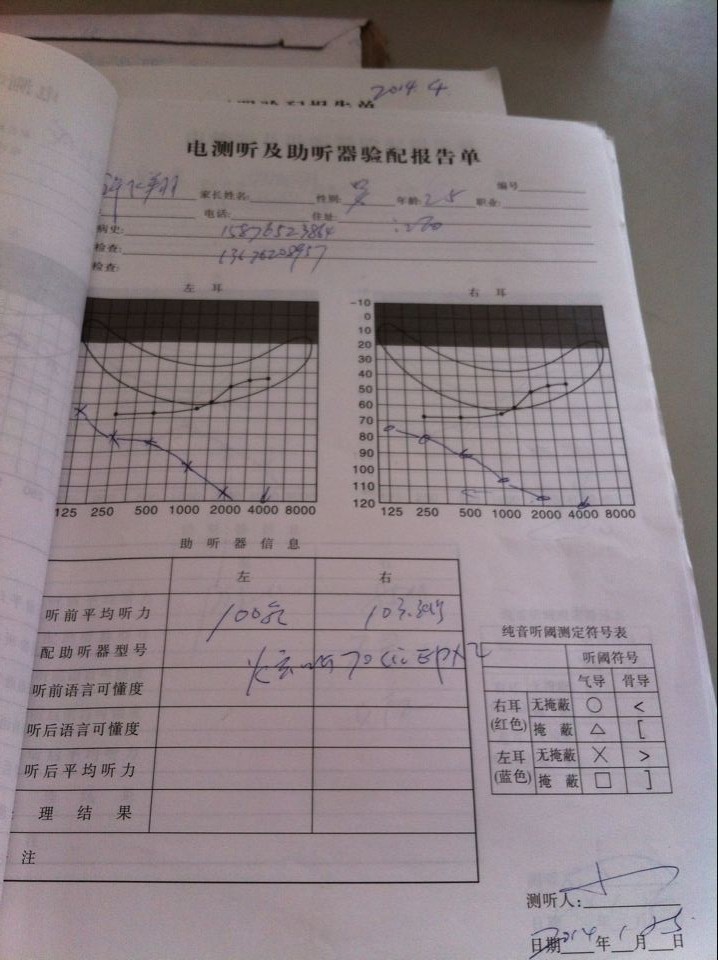 2014.4
电测听及助听器验配报告单
编号
家长姓名: 性别: 男 年龄: 25 职业:
电话: 住址:
病史: 15876523864
检查: 13676208957
检查:
左 耳 右 耳
-10
0
10
20
30
40
50
60
70
80
90
100
110
120
125 250 500 1000 2000 4000 8000
125 250 500 1000 2000 4000 8000
助 听 器 信 息
左 右
听前平均听力 100
配助听器型号
听前语言可懂度
听后语言可懂度
听后平均听力
理 结 果
注
纯音听阈测定符号表
听阈符号
气导 骨导
右耳(红色) 无掩蔽 ○ <
掩 蔽 △ [
左耳(蓝色) 无掩蔽 × >
掩 蔽 □ ]
测听人:
日期 2014 年 1 月 25 日